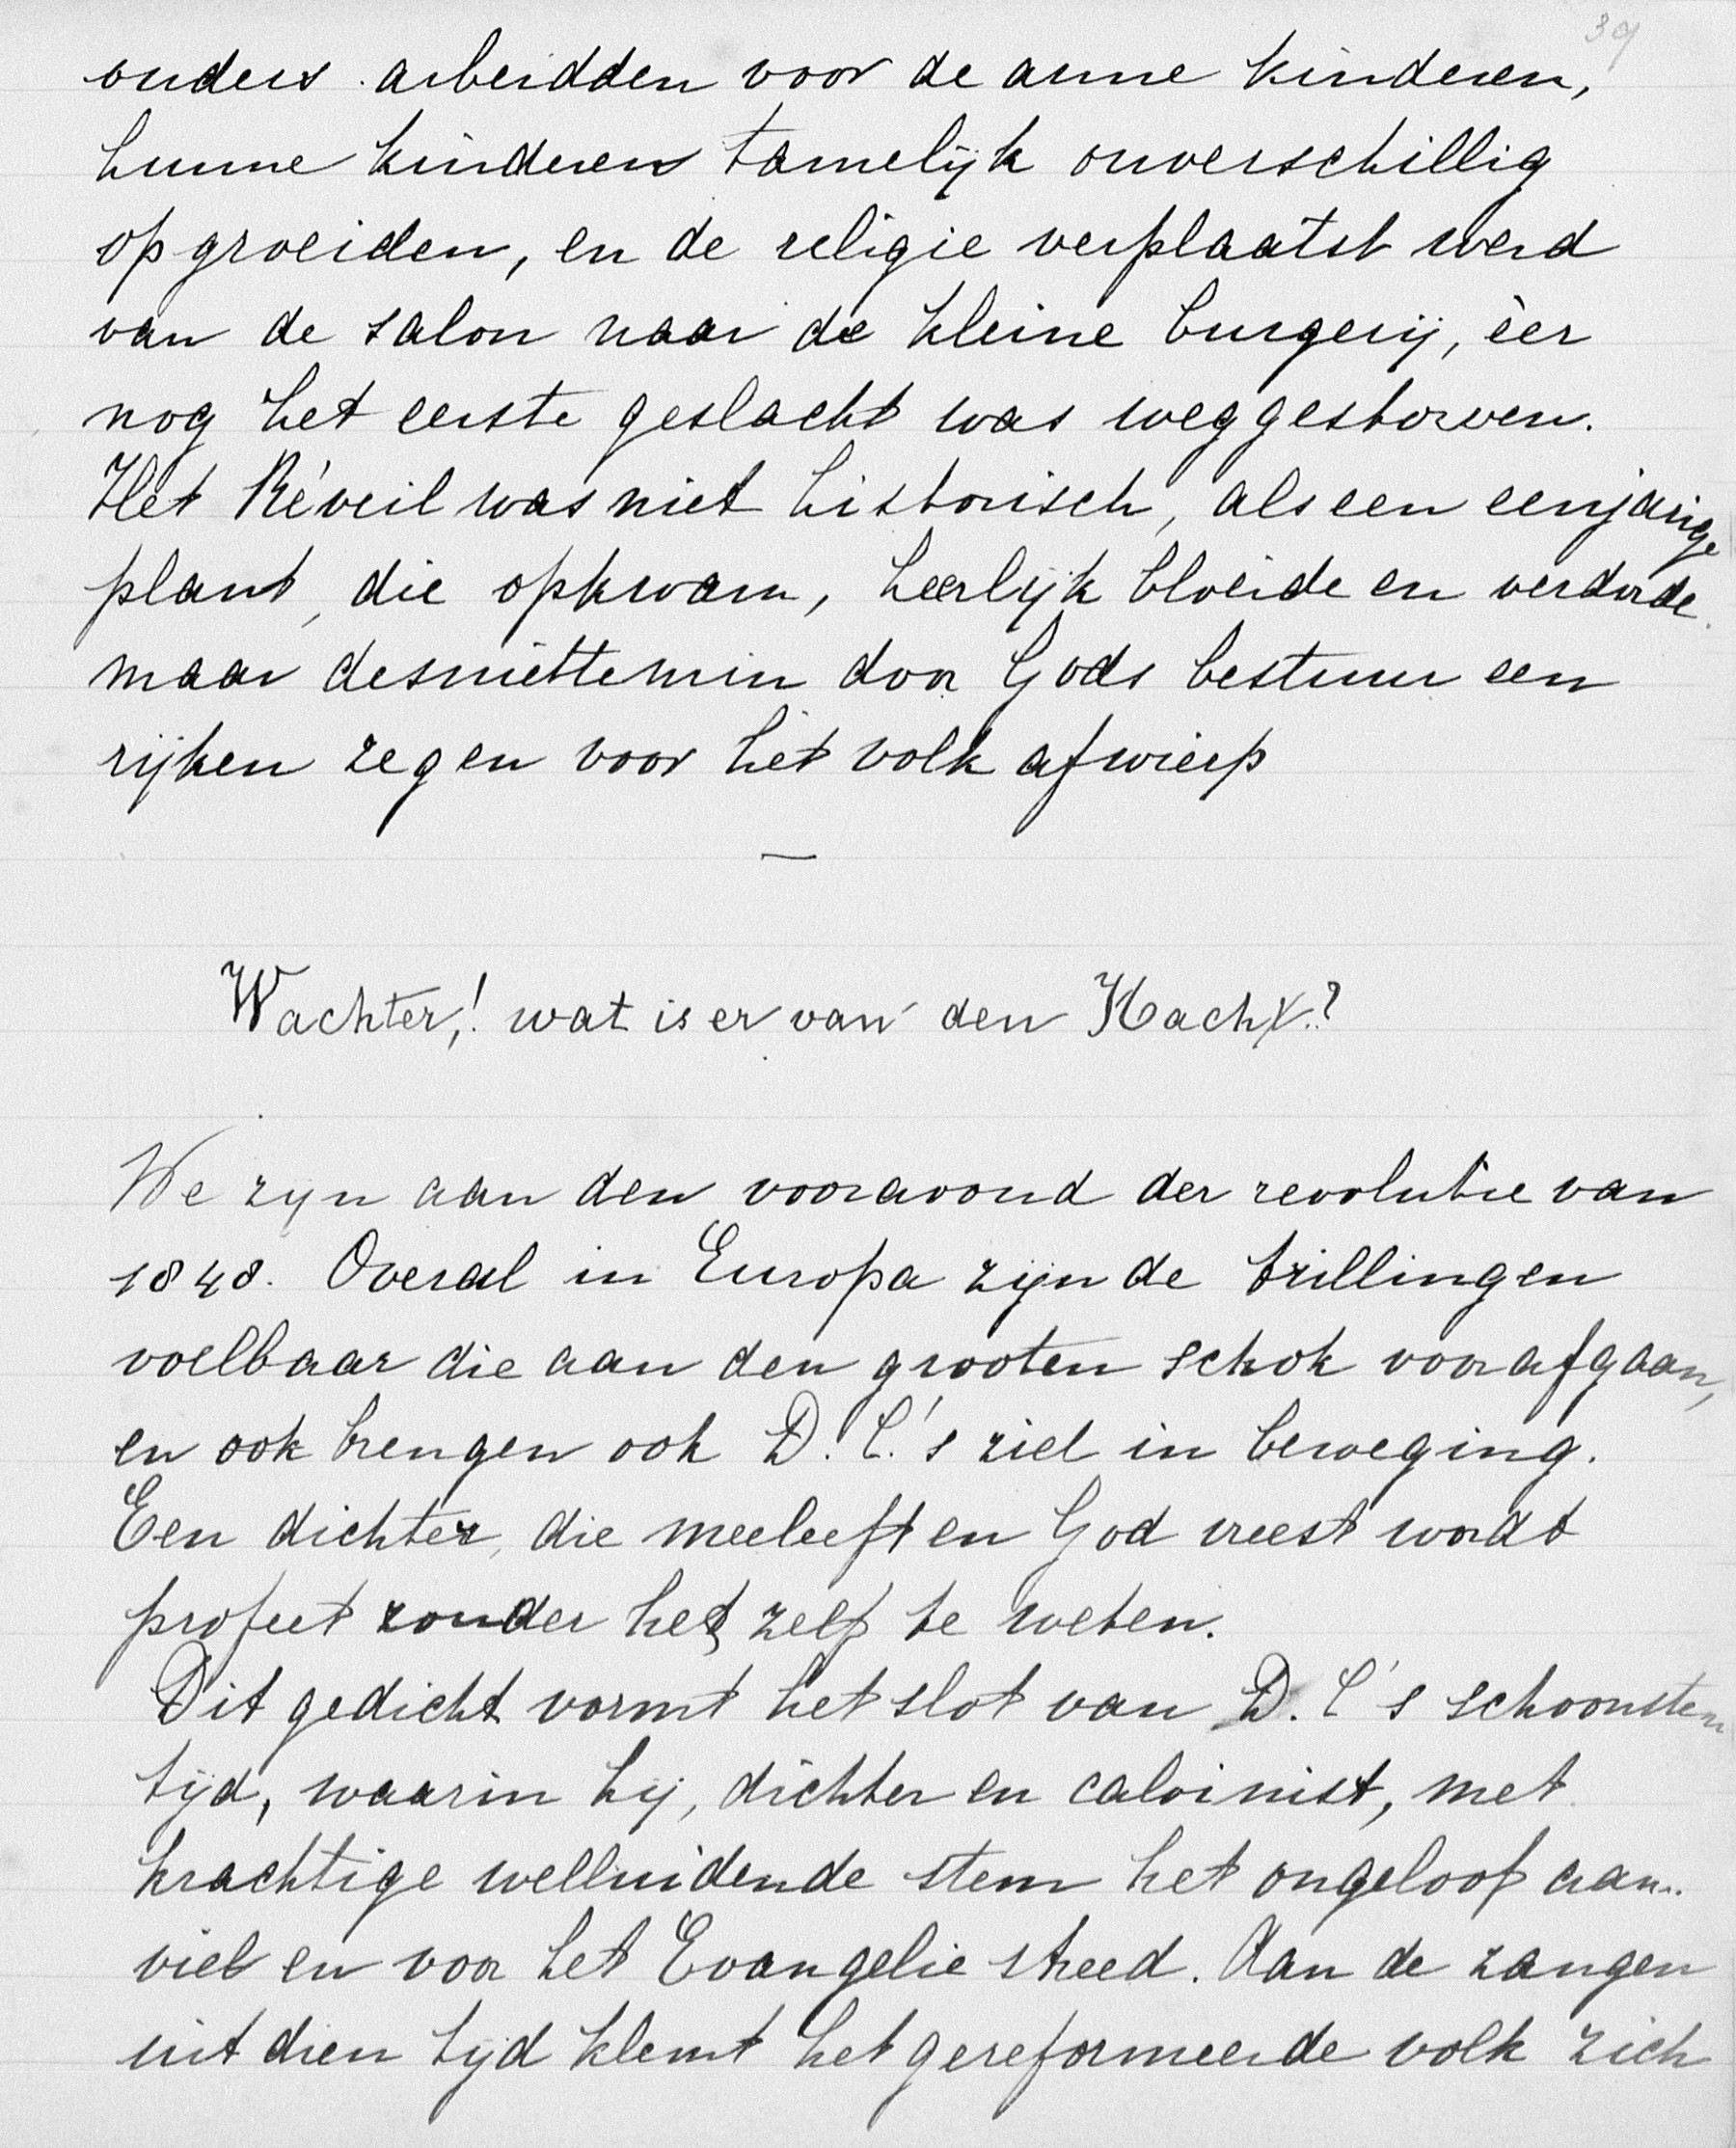 39
ouders arbeidden voor de arme kinderen,
hunne kinderen tamelijk onverschillig
opgroeiden, en de religie verplaatst werd
van de salon naar de kleine burgerij, èer
nog het eerste geslacht was weggestorven.
Het Réveil was niet historisch, als een eenjarige
plant, die opkwam, heerlijk bloeide en verdorde.
maar desniettemin door Gods bestuur een
rijken zegen voor het volk afwierp
—
Wachter,! wat is er van den Nacht.?
We zijn aan den vooravond der revolutie van
1848. Overal in Europa zijn de trillingen
voelbaar die aan den grooten schok voorafgaan,
en ook brengen ook D. C.'s ziel in beweging.
Een dichter, die meeleeft en God vreest wordt
profeet zonder het zelf te weten.
Dit gedicht vormt het slot van D. C's schoonsten
tijd, waarin hij, dichter en calvinist, met
krachtige welluidende stem het ongeloof aan..
viel en voor het Evangelie streed. Aan de zangen
uit dien tijd klemt het gereformeerde volk zich